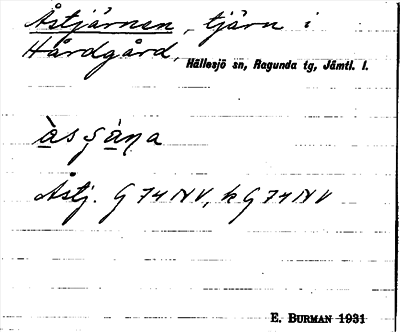 Åstjärnen, tjärn i
Hårdgård, Hällesjö sn, Ragunda tg, Jämtl. l.
àsʃàṇa
Åstj. G 74 NV, k G 74 NV
E. BURMAN 1931